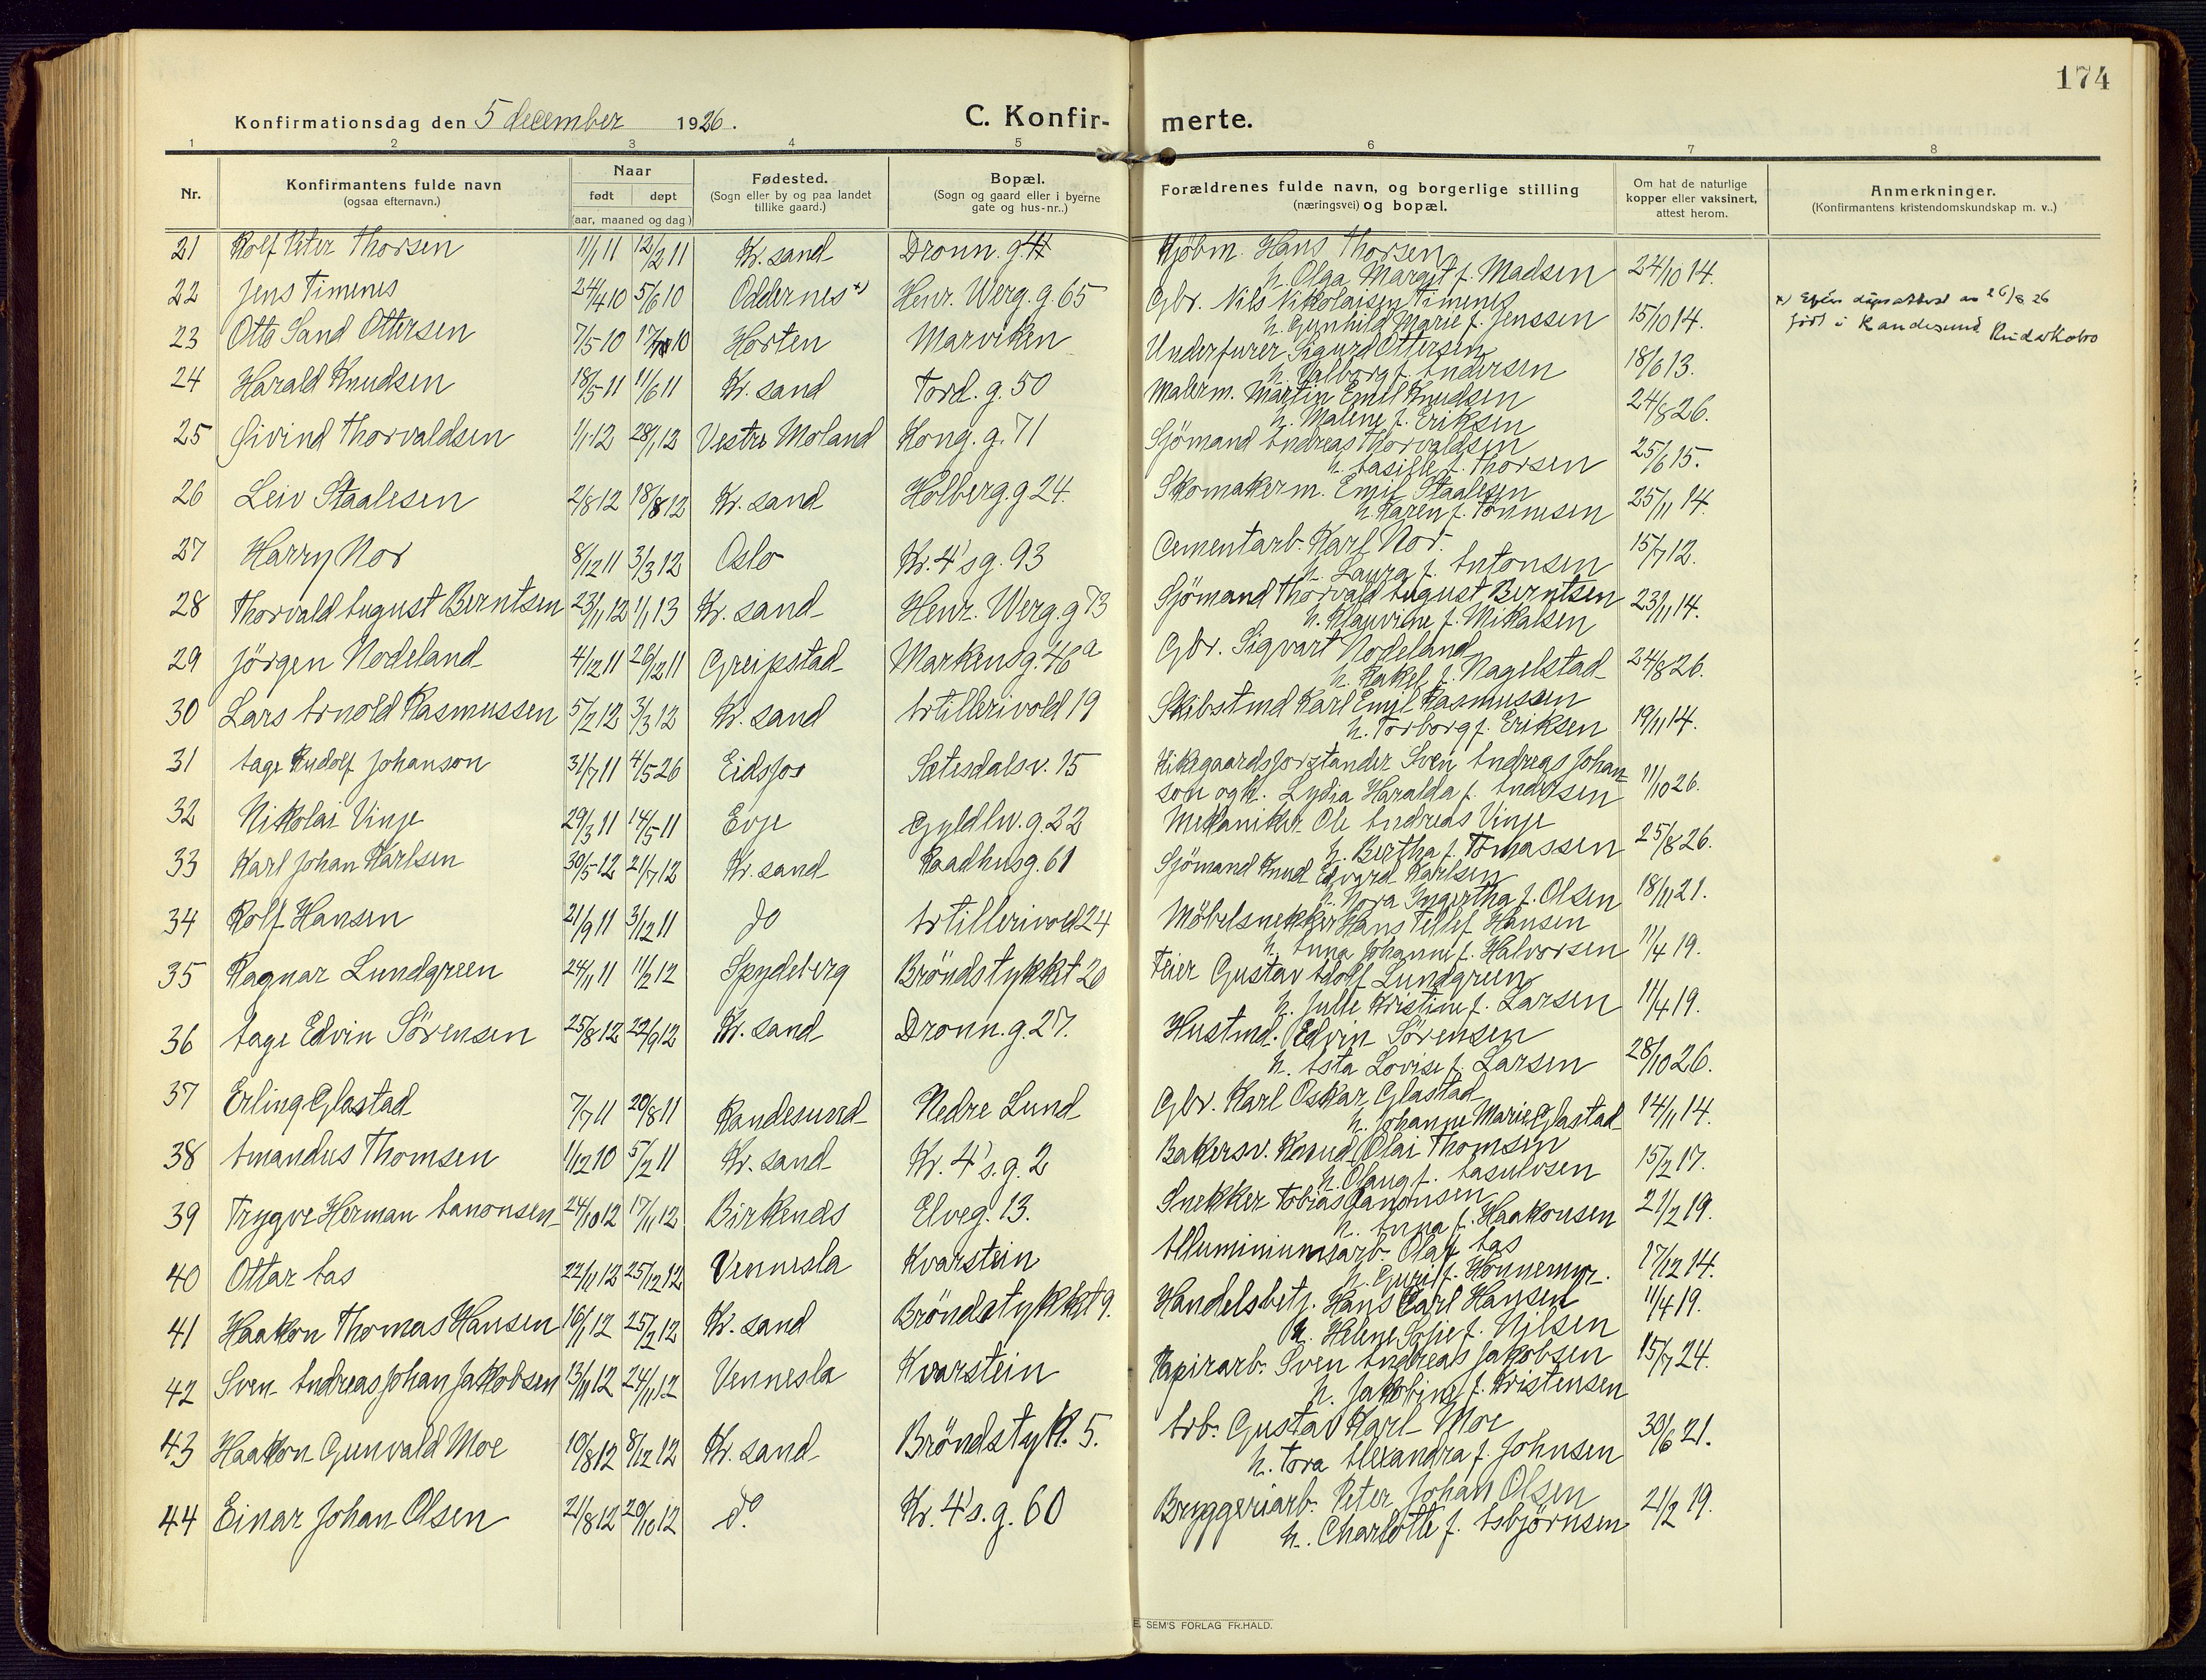 174
Konfirmationsdag den 5 december 1926.
C. Konfir- merte.
1 2 3 4 5 6 7 8
Nr.
Konfirmantens fulde navn
(ogsaa efternavn.)
Naar
født døpt
(aar, maaned og dag)
Fødested.
(Sogn eller by og paa landet
tillike gaard.)
Bopæl.
(Sogn og gaard eller i byerne
gate og hus-nr..)
Forældrenes fulde navn, og borgerlige stilling
(næringsvei) og bopæl.
Om hat de naturlige
kopper eller vaksinert,
attest herom.
Anmerkninger.
(Konfirmantens kristendomskundskap m. v..)
21 Rolf Peter Thorsen 11/1 11 12/2 11 Kr. sand Dronn. g. 44 Kjöbm. Hans Thorsen
h. Olga Margit f. Madsen 24/10 14.
22 Jens Timenes 24/4 10 5/6 10 Oddernes x) Henr. Werg. g. 65 Gbr. Nils Nikolaisen Timenes
h. Gunhild Marie f. Jenssen 15/10 14.
x) Efter dåpsattest av 26/8 26
født i Randesund
23 Otto Sand Ottersen 7/5 10 17/7 10 Horten Marviken Underfurer Sigurd Ottersen
h. Valborg f. Andersen 18/6 13.
24 Harald Knudsen 18/5 11 11/6 11 Kr. sand Tord. g. 50 Malerm. Martin Emil Knudsen
h. Malene f. Eriksen 24/8 26.
25 Øivind Thorvaldsen 1/1 12 28/1 12 Vestre Moland Kong. g. 71 Sjömand Andreas Thorvaldsen
h. Aasille f. Thorsen 25/6 15.
26 Leiv Staalesen 2/8 12 18/8 12 Kr. sand Holberg. g 24. Skomakerm. Emil Staalesen
h. Karen f. Tönnesen 25/11 14.
27 Harry Nor 8/12 11 3/3 12 Oslo Kr. 4's g. 93 Cementarb. Karl Nor.
h. Laura f. Antonsen 15/7 12.
28 Thorvald August Berntsen 23/11 12 1/1 13 Kr. sand Henr. Werg. g 73 Sjömand Thorvald August Berntsen
h. Klauvine f. Mikalsen 23/11 14.
29 Jörgen Nodeland 4/12 11 26/12 11 Greipstad Markensg. 46a Gbr. Sigvart Nodeland
h. Rakel f. Nagelstad 24/8 26.
30 Lars Arnold Rasmussen 5/2 12 3/3 12 Kr. sand Artillerivold 19 Skibstmd Karl Emil Rasmussen
h. Torborg f. Eriksen 19/11 14.
31 Aage Rudolf Johanson 31/7 11 4/5 26 Eidsfos Sætesdalsv. 15 Kikegaardsforstander Sven Andreas Johan-
son og h. Lydia Haralda f. Andersen 11/10 26.
32 Nikolai Vinje 29/3 11 14/5 11 Evje Gyldlv. g. 22 Mekaniker Ole Andreas Vinje
h. Bertha f. Tomassen 25/8 26.
33 Karl Johan Karlsen 30/5 12 21/7 12 Kr. sand Raadhusg. 61 Sjömand Knud Edvard Karlsen
h. Nora Ingertha f. Olsen 18/11 21.
34 Rolf Hansen 21/9 11 3/12 11 do Artillerivold 24 Möbelsnekker Hans Tellef Hansen
h. Anna Johanne f. Halvorsen 11/4 19.
35 Ragnar Lundgreen 24/11 11 11/2 12 Spydeberg Bröndstykket 20 Feier Gustav Adolf Lundgreen
h. Julle Kristine f. Larsen 11/4 19.
36 Aage Edvin Sörensen 25/8 12 22/9 12 Kr. sand Dronn. g. 27. Hustmd. Edvin Sörensen
h. Asta Lovise f. Larsen 28/10 26.
37 Erling Glastad 7/7 11 20/8 11 Randesund Nedre Lund Gbr. Karl Oskar Glastad
h. Johanne Marie Glastad 14/11 14.
38 Amandus Thomsen 1/12 10 5/2 11 Kr. sand Kr. 4's. g. 2 Bakersv. Knud Olai Thomsen
h. Olaug f. Aasulvsen 15/2 17.
39 Trygve Herman Aanonsen 24/10 12 17/11 12 Birkenes Elveg. 13. Snekker Tobias Aanonsen
h. Anna f. Haakonsen 21/2 19.
40 Ottar Aas 22/11 12 25/12 12 Vennesla Kvarstein Alluminiumsarb. Olaf Aas
h. Guri f. Honnemyr. 17/12 14.
41 Haakon Thomas Hansen 16/1 12 25/2 12 Kr. sand Bröndstykket 9. Handelsbetj. Hans Carl Hansen
h. Helene Sofie f. Nilsen 11/4 19.
42 Sven Andreas Johan Jakobsen 13/10 12 24/11 12 Vennesla Kvarstein Papirarb. Sven Andreas Jakobsen
h. Jakobine f. Kristensen 15/7 24.
43 Haakon Gunvald Moe 10/8 12 8/12 12 Kr. sand Bröndstyk. 5. Arb. Gustav Karl Moe
h. Tora Alexandra f. Johnsen 30/6 21.
44 Einar Johan Olsen 21/8 12 20/10 12 do Kr. 4's. g. 60 Bryggeriarb. Peter Johan Olsen
h. Charlotte f. Asbjörnsen 21/2 19.
E. SEM'S FORLAG FR.HALD.